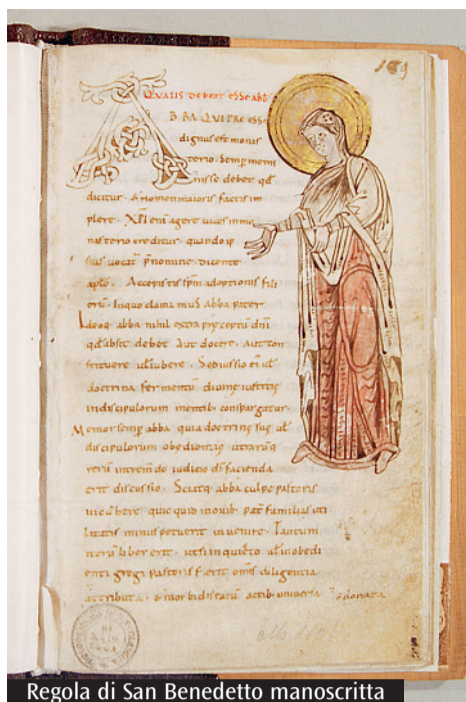 189
QUALIS DEBEAT ESSE ABB
BBA QUI PREESSE
dignus est monas
terio. Semp memi
nisse debet qd
dicitur. & nomen maioris factis im
plere. XPI eni agere vices inmo
nasterio creditur. quando ip
sius vocat pnomine. dicente
aplo. Accepistis spm adoptionis fili
oru. Inquo clamamus abba pater.
Ideoq; abba nihil extra preceptu dni
qd absit debet aut docere. aut con
stituere vel iubere. Sed iussio ei ul
doctrina fermentu divine iustitie
indiscipulorum mentib; conspargatur.
Memor semp abba. quia doctrine sue ul
discipulorum obedientie. utrarūq;
reru intremendo iudicio di facienda
erit discussio. Sciatq; abba culpe pastoris
incubere. quicquid inovib; pat familias uti
litatis minus potuerit invenire. Tantum
iteru liber erit. ut si inquieto ul inobedi
enti gregi pastoris fuerit omis diligentia
attributa. & morbidis earu actib; universa
Regola di San Benedetto manoscritta